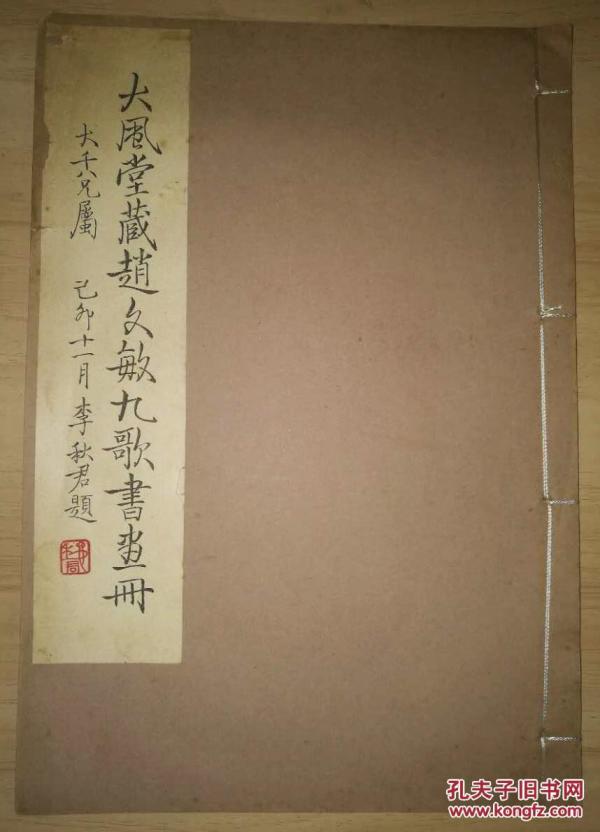 大風堂藏趙文敏九歌書畫冊
大千八兄屬
己卯十一月 李秋君題
孔夫子旧书网
www.kongfz.com